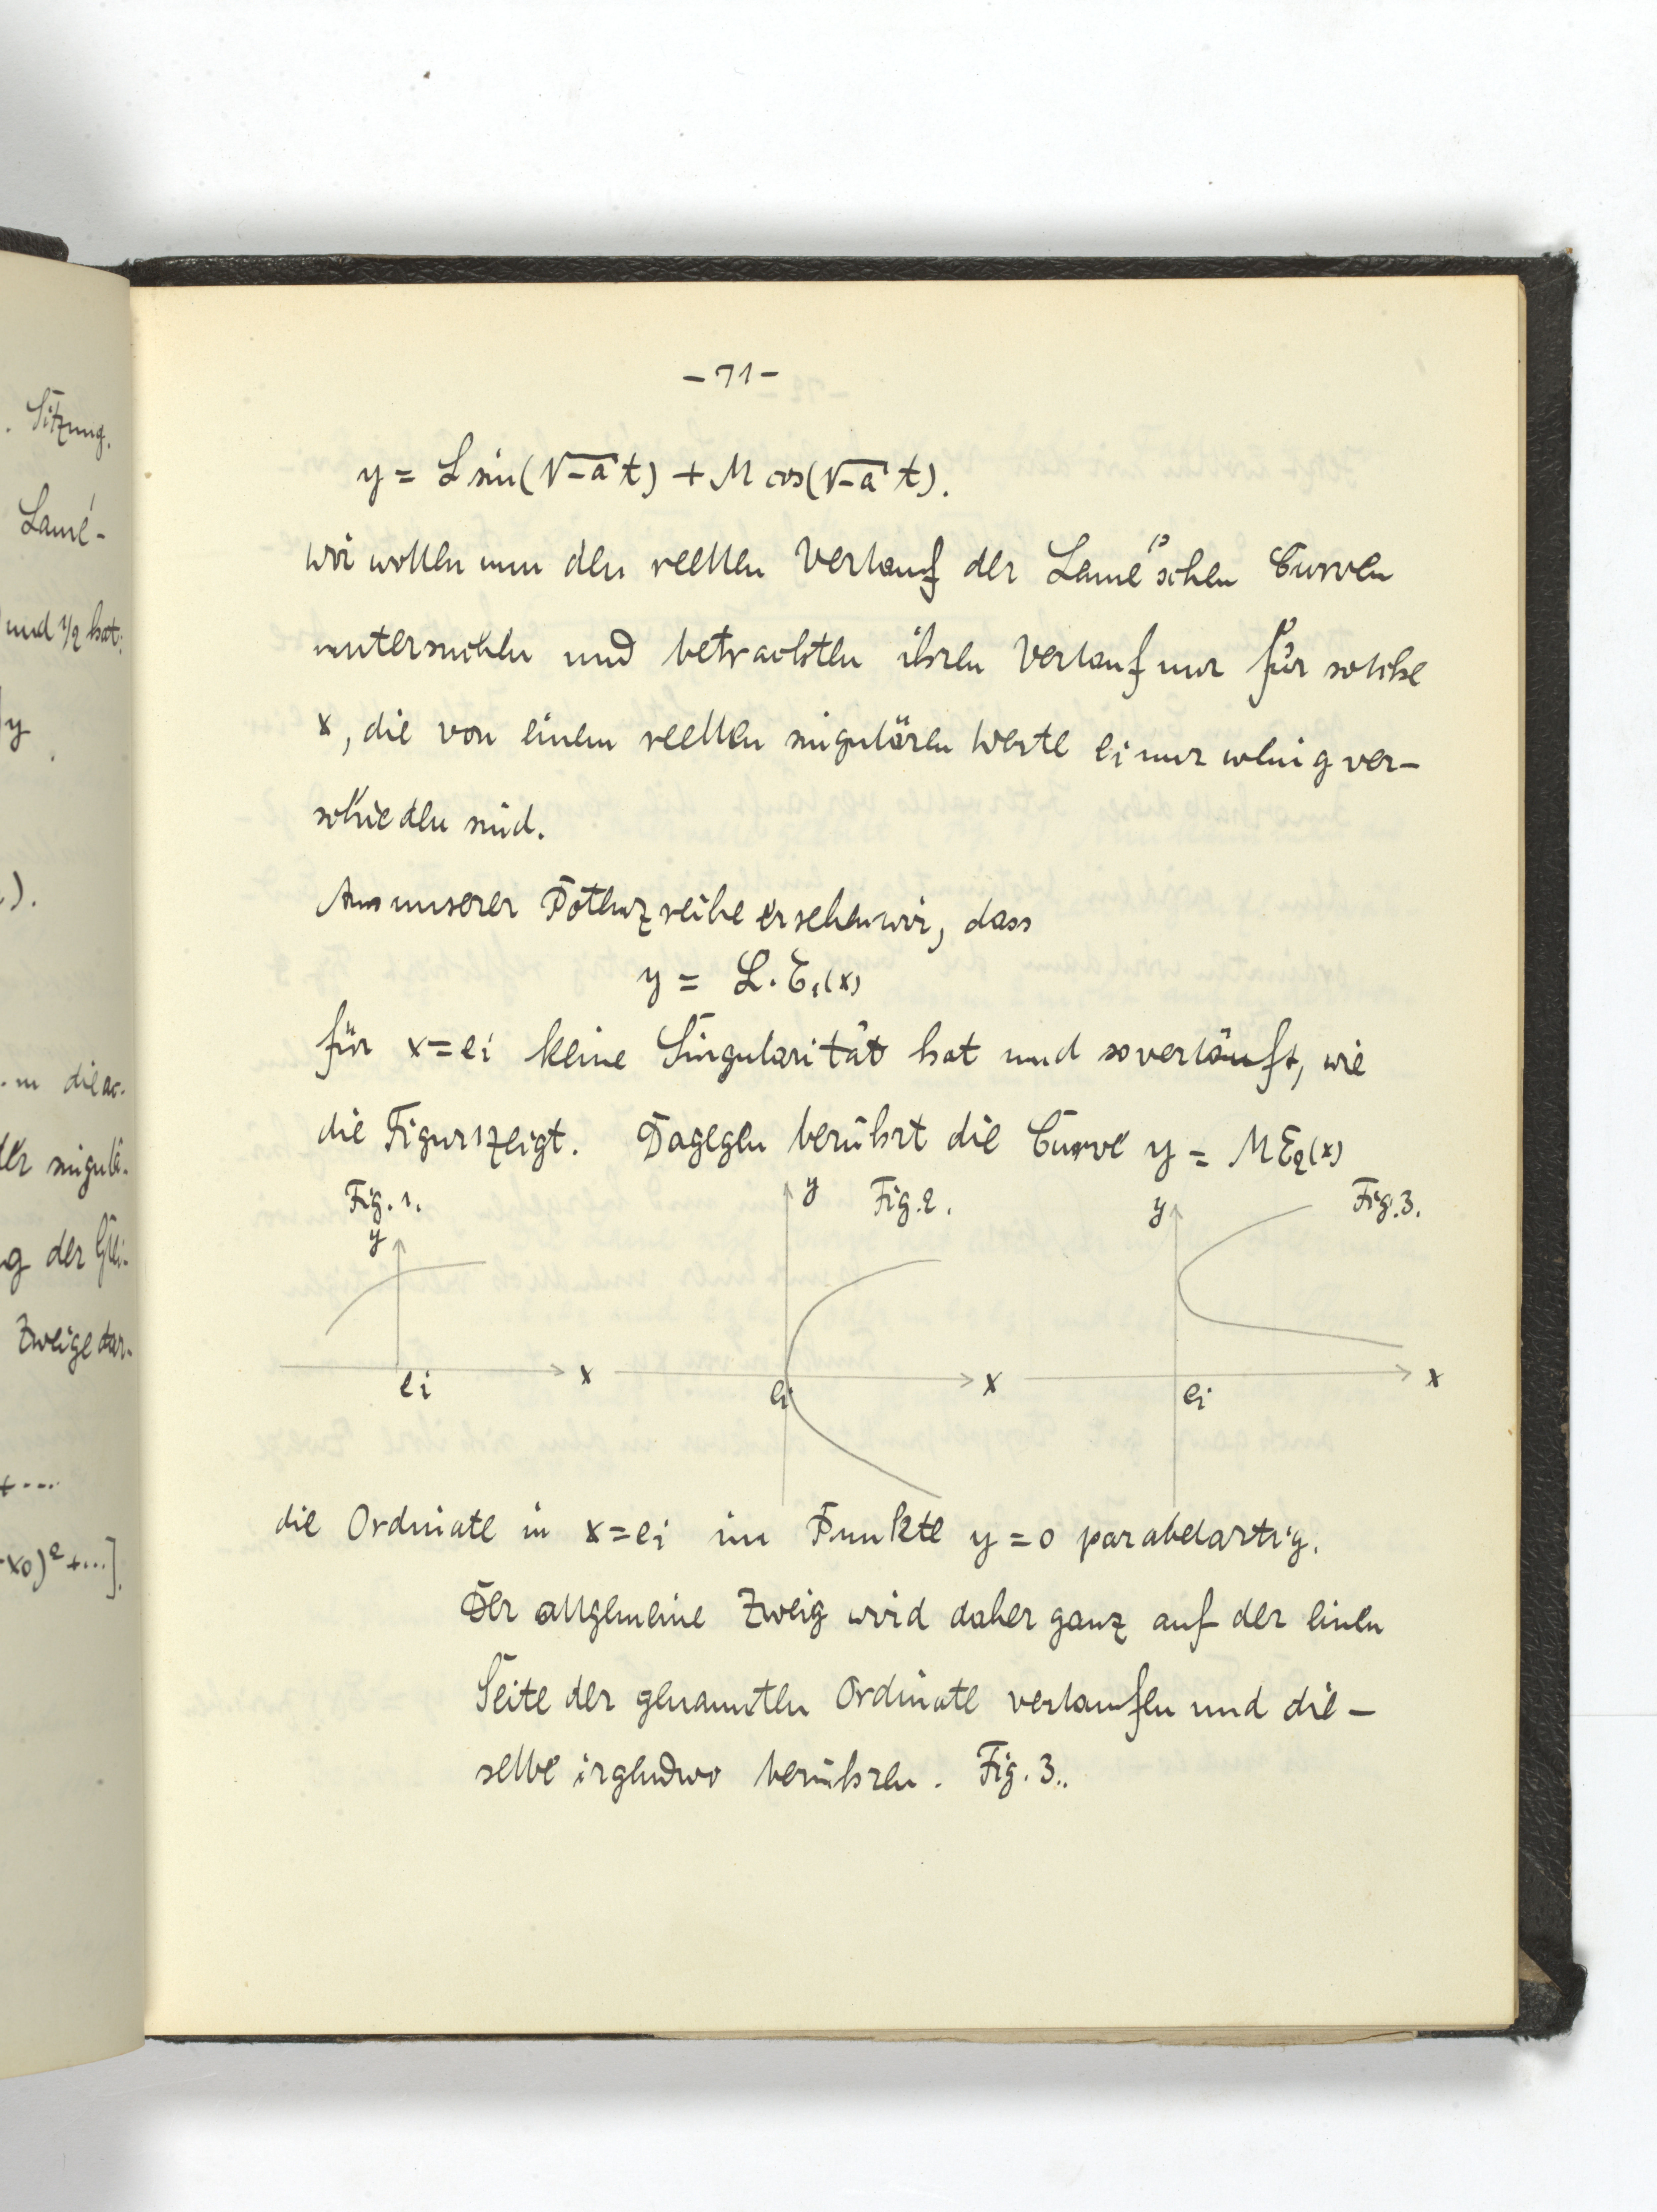 . Sitzung.
Lamé-
und 1/2 hat:
y
).
die ac-
der singulä-
g der Glei-
Zweige dar-
+ ...
-x0)² + ...].
- 71 -
y = L sin(√-a t) + M cos(√-a t).
wir wollen nun den reellen Verlauf der Lamé'schen Curven
untersuchen und betrachten ihren Verlauf nur für solche
x, die von einem reellen singulären Werte ei nur wenig ver-
schieden sind.
Aus unserer Potenzreihe ersehen wir, dass
y = L. E1(x)
für x = ei keine Singularität hat und so verläuft, wie
die Figur 1 zeigt. Dagegen berührt die Curve y = M E2(x)
Fig. 1.
y
x
ei
Fig. 2.
y
x
ei
Fig. 3.
y
x
ei
die Ordinate in x = ei im Punkte y = 0 parabelartig.
Der allgemeine Zweig wird daher ganz auf der einen
Seite der genannten Ordinate verlaufen und die-
selbe irgendwo berühren. Fig. 3..